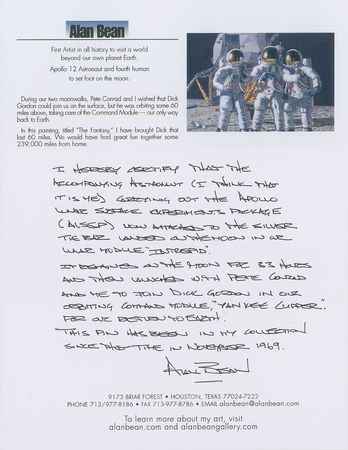 Alan Bean
First Artist in all history to visit a world
beyond our own planet Earth.
Apollo 12 Astronaut and fourth human
to set foot on the moon.
During our two moonwalks, Pete Conrad and I wished that Dick
Gordon could join us on the surface, but he was orbiting some 60
miles above, taking care of the Command Module — our only way
back to Earth.
In this painting, titled "The Fantasy," I have brought Dick that
last 60 miles. We would have had great fun together some
239,000 miles from home.
I HEREBY CERTIFY THAT THE
ACCOMPANYING ASTRONAUT (I THINK THAT
IT IS ME) CARRYING OUT THE APOLLO
LUNAR SURFACE EXPERIMENTS PACKAGE
(ALSEP) NOW ATTACHED TO THE SILVER
TIE BAR LANDED ON THE MOON IN OUR
LUNAR MODULE, "INTREPID".
IT REMAINED ON THE MOON FOR 33 HOURS
AND THEN LAUNCHED WITH PETE CONRAD
AND ME TO JOIN DICK GORDON IN OUR
ORBITING COMMAND MODULE, "YANKEE CLIPPER".
FOR OUR RETURN TO EARTH.
THIS PIN HAS BEEN IN MY COLLECTION
SINCE THAT TIME IN NOVEMBER 1969.
Alan Bean
9173 BRIAR FOREST • HOUSTON, TEXAS 77024-7222
PHONE 713/977-8186 • FAX 713-977-8786 • EMAIL alanbean@alanbean.com
To learn more about my art, visit
alanbean.com and alanbeangallery.com.